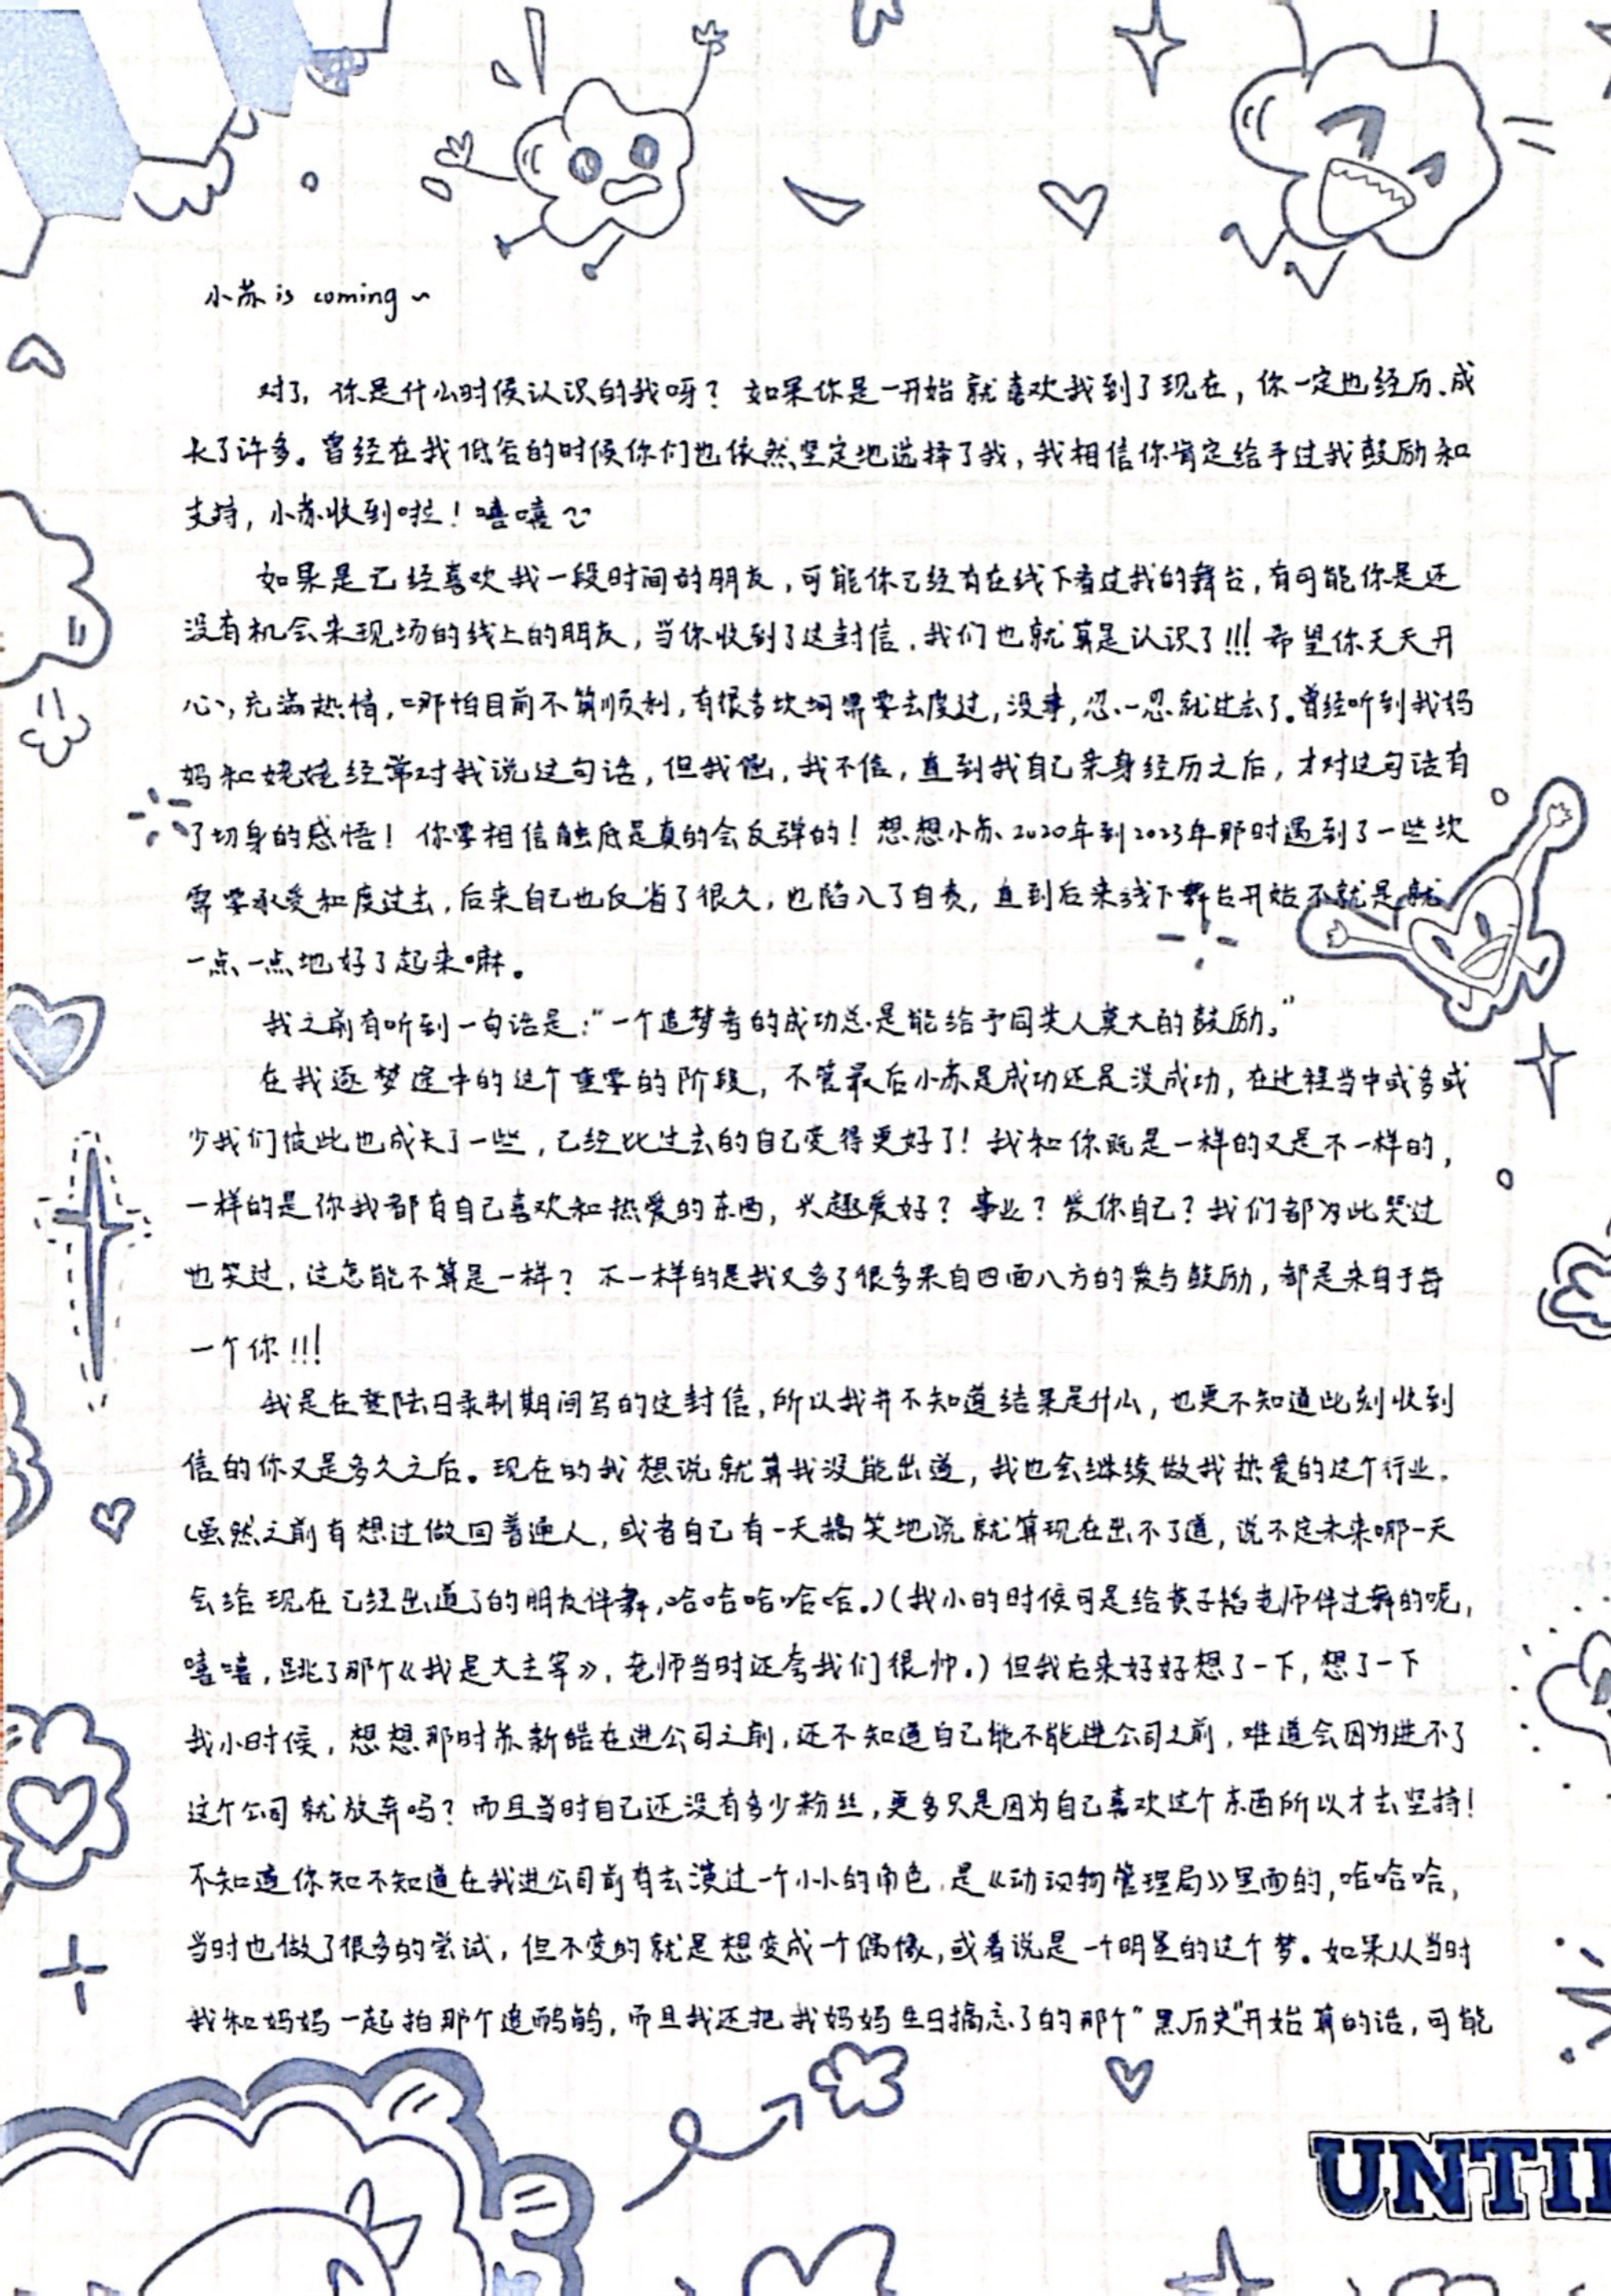 小苏is coming~
对了，你是什么时候认识的我呀？如果你是一开始就喜欢我到了现在，你一定也经历、成
长了许多。曾经在我低谷的时候你们也依然坚定地选择了我，我相信你肯定给予过我鼓励和
支持，小苏收到啦！嘻嘻
如果是已经喜欢我一段时间的朋友，可能你已经有在线下看过我的舞台，有可能你是还
没有机会来现场的线上的朋友，当你收到了这封信，我们也就算是认识了!!! 希望你天天开
心，充满热情，哪怕目前不算顺利，有很多坎坷需要去度过，没事，忍一忍就过去了。曾经听到我妈
妈和姥姥经常对我说这句话，但我倔，我不信，直到我自己亲身经历之后，才对这句话有
了切身的感悟！你要相信触底是真的会反弹的！想想小苏2020年到2023年那时遇到了一些坎
需要承受和度过去，后来自己也反省了很久，也陷入了自责，直到后来线下舞台开始不就是就
一点一点地好了起来嘛。
我之前有听到一句话是："一个追梦者的成功总是能给予同类人莫大的鼓励。"
在我逐梦途中的这个重要的阶段，不管最后小苏是成功还是没成功，在过程当中或多或
少我们彼此也成长了一些，已经比过去的自己变得更好了！我和你既是一样的又是不一样的，
一样的是你我都有自己喜欢和热爱的东西，兴趣爱好？事业？爱你自己？我们都为此哭过
也笑过，这怎能不算是一样？不一样的是我又多了很多来自四面八方的爱与鼓励，都是来自于每
一个你!!!
我是在登陆日录制期间写的这封信，所以我并不知道结果是什么，也更不知道此刻收到
信的你又是多久之后。现在的我想说就算我没能出道，我也会继续做我热爱的这个行业。
(虽然之前有想过做回普通人，或者自己有一天搞笑地说就算现在出不了道，说不定未来哪一天
会给现在已经出道了的朋友伴舞，哈哈哈哈哈。)(我小的时候可是给黄子韬老师伴过舞的呢，
嘻嘻，跳了那个《我是大主宰》，老师当时还夸我们很帅。)但我后来好好想了一下，想了一下
我小时候，想想那时苏新皓在进公司之前，还不知道自己能不能进公司之前，难道会因为进不了
这个公司就放弃吗？而且当时自己还没有多少粉丝，更多只是因为自己喜欢这个东西所以才去坚持！
不知道你知不知道在我进公司前有去演过一个小小的角色，是《动物管理局》里面的，哈哈哈，
当时也做了很多的尝试，但不变的就是想变成一个偶像，或者说是一个明星的这个梦。如果从当时
我和妈妈一起拍那个追鹌鹑，而且我还把我妈妈生日搞忘了的那个"黑历史"开始算的话，可能
UNTI